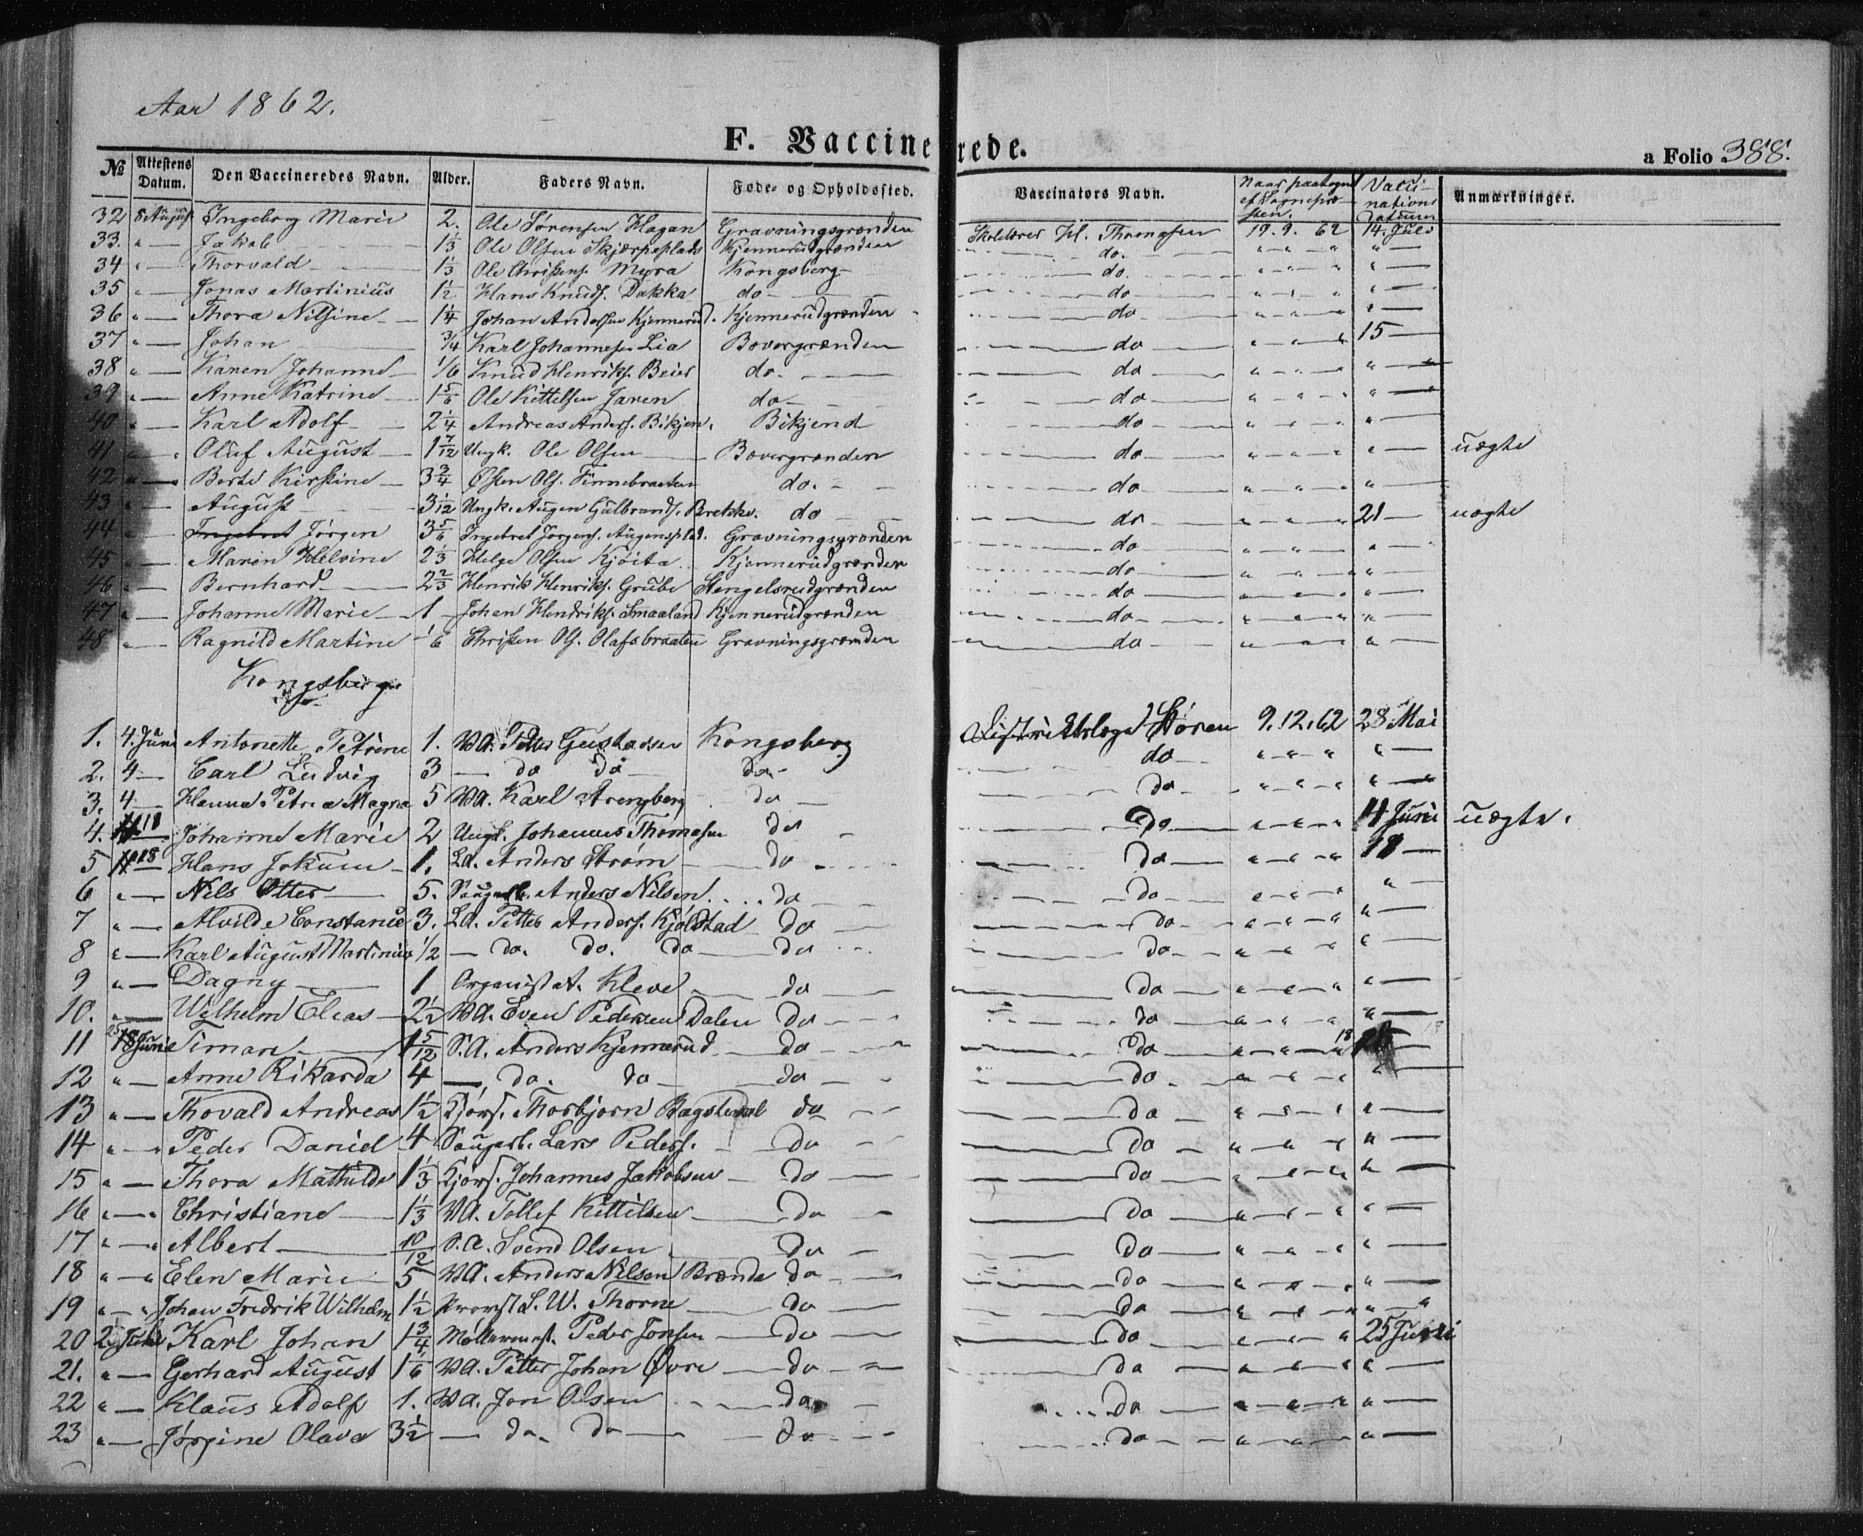 Aar 1862.
F. Vaccinerede. a Folio 388.
№ Attestens Datum. Den Vaccineredes Navn. Alder. Faders Navn. Føde- og Opholdssted. Vaccinators Navn. Naar paategnet af Sognepresten. Vaccinations Datum Anmærkninger.
32 8 August Ingeborg Marie 2. Ole Sørensen Hagan Gravningsgrænden Skolelærer H. Thomasen 19. 9. 62 14. Juli
33. " — Jakob 1 1/3 Ole Olsen Skjærpeplads Kjennerudgrænden do. " " " " —
34 " — Thorvald 1 1/3 Ole Christens. Myra Kongsberg do " " " " —
35 " — Jonas Martinius 1 1/2 Hans Knuds. Bakka do do " " " " —
36 " — Thora Nilsine 1 1/4 Johan Andersen Kjennerud. Kjennerudgrænden do " " " " —
37 " — Johan 3/4 Karl Johannesen Lia Bævergrænden do " " " 15 —
38 " — Karen Johanne 1/6 Knud Henriks. Beier do. do " " " " —
39 " — Anne Katrine 1 5/6 Ole Kittelsen Jaren do do " " " " —
40 " — Karl Adolf 2 1/4 Andreas Anders. Bikjen. Bikjend do " " " " —
41 " — Oluf August 1 7/12 Ungk. Ole Olsen Bævergrænden do " " " " — uægte
42 " — Berte Kirstine 3 3/4 Osten Ols. Finnebraaten do. do " " " " —
43 " — August 3 1/12 Ungk. Augen Gulbrands. Brekke. do do " " " 21 — uægte
44 " — Ingebret Jørgen 3 5/6 Ingebret Jørgens. Augenspl. Gravningsgrænden do " " " " —
45 " — Maren Helvine 2 1/3 Helge Olsen Kjøita Kjennerudgrænden do " " " " —
46 " — Bernhard 2 2/3 Henrik Henriks. Grube Stengelsrudgrænden do " " " " —
47 " — Johanne Marie 1 Johan Hendriks. Smaaland Kjennerudgrænden do " " " " —
48 " — Ragnild Martine 1/6 Christen Ols. Olafsbraaten Gravningsgrænden do " " " " —
Kongsberg
1. 4. Juni Antonette Petrine 1. VA. Petter Gustavsen Kongsberg Distriktslæge Støren 9. 12. 62 28 Mai
2. 4 — Carl Ludvig 3 — do do do do " " " " —
3. 4 — Hanna Petrea Magna 5 VA. Karl Strengberg do do " " " " —
4. 18 — Johanne Marie 2 Ungk. Johannes Thomasen do do " " " 11 Juni uægte.
5 18 — Hans Jokum 1. La. Anders Strøm do do " " " 18 —
6 " — Nils Otter 5. Saugarb. Anders Nilsen do do " " " " —
7 " — Alvilde Constance 3. La. Petter Anders. Kjølstad do do " " " " —
8 " — Karl August Martinius 1/2 — do. do. do do do " " " " —
9 " — Dagny 1 Organist A. Kleve do do " " " " —
10. " — Wilhelm Elias 2 1/2 VA. Even Pedersen Dalen do do " " " " —
11 25 18 Juni Timan 1 5/12 S.A. Anders Kjennerud do do " " " 18 —
12 " — Anne Rikarda 4 — do. do do do " " " " —
13 " — Thovald Andreas 1 1/2 Kjørs. Thorbjørn Bagstevol do do " " " " —
14 " — Peder Daniel 4 Saugarb. Lars Peders. do do " " " " —
15 " — Thora Mathilde 1 1/3 Kjørs. Johannes Jakobsen do do " " " " —
16 " — Christiane 1 1/3 VA. Tollef Kittilsen do do " " " " —
17 " — Albert 10/12 S.A. Svend Olsen do do " " " " —
18 " — Elen Marie 5 VA. Anders Nilsen Brænde do do " " " " —
19 " — Johan Fredrik Wilhelm 1 1/2 Provst L. W. Thorne do do " " " " —
20 2. Juli Karl Johan 1 3/4 Møllermest. Peder Jonsen do do " " " 25 Juni
21. " — Gerhard August 1 1/6 VA. Petter Johan Øvre do do " " " " —
22 " — Klaus Adolf 1. VA. Jon Olsen do do " " " " —
23 " — Jørgine Olava 3 1/2 — do. do do do " " " " —